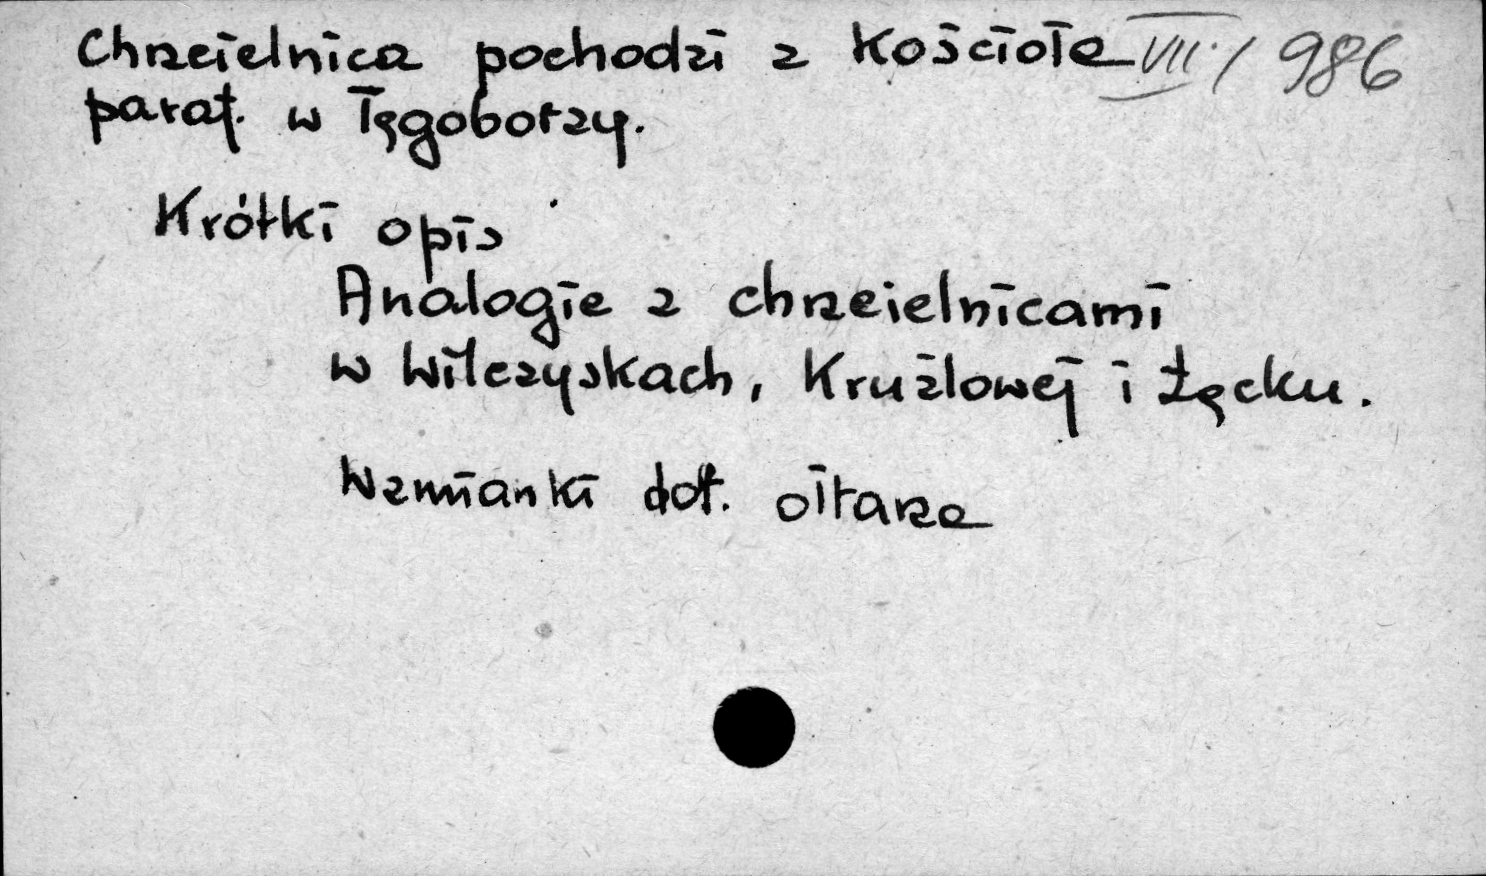 Chrzcielnica pochodzi z Kościoła VII/986
paraf. w Tęgoborzy.
Krótki opis
Analogie z chrzcielnicami
w Wilczyskach, Krużlowej i Łącku.
Wzmianki dot. ołtarza